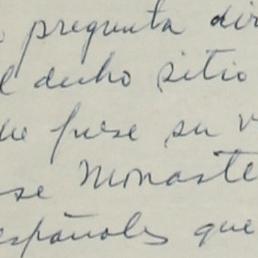 pregunta dir
dicho sitio
fuese su v
se Monaste
españoles que